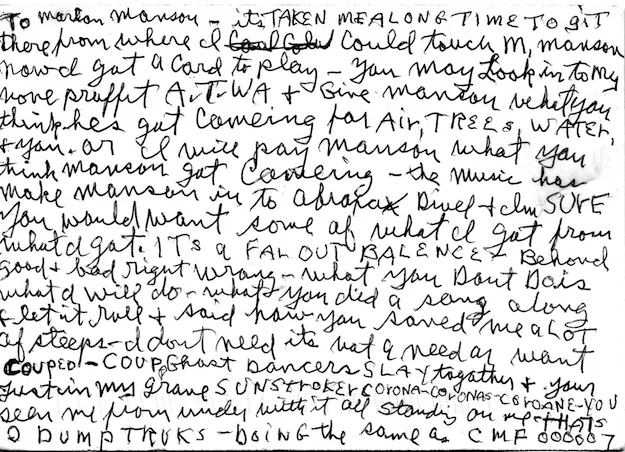 To marlon manson - its TAKEN ME A LONG TIME TO git
there from where I could touch M, manson
now I got a card to play - you may Look in to my
none proffit A.T.WA + Give manson what you
think hes got comeing for Air, TREES, WATER,
+ you. or I will pay manson what you
think manson got comeing - the music has
make manson in to abraxas Divel + Im SURE
you would want some of what I got from
what I got. ITS a FAR OUT BALENCE - Behond
good + bad right wrong - what you Dont Do is
what I will do - what you did a song along
+ let it roll + said how you saved me a LOT
of steeps - I dont need its not a need or want
COUPED - COUP. Ghost Dancers SLAY together + your
just in my grave SUNSTROKER CORONA-CORONAS-COROANE-YOU
seen me from under with it all standing on me. thats
2 DUMP TRUKS - DOING the same as CMF 000007